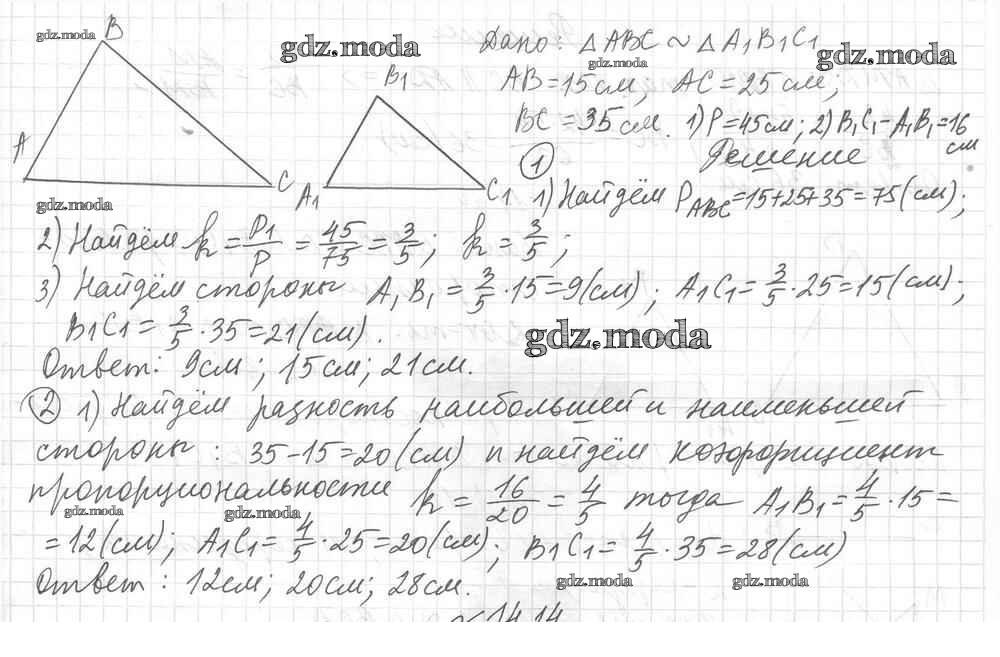 gdz.moda
B
gdz.moda
Дано: △ABC ~ △A₁B₁C₁
gdz.moda
gdz.moda
B₁
AB = 15 см, AC = 25 см;
BC = 35 см. 1) P = 45 см; 2) B₁C₁ - A₁B₁ = 16 см
A
C
A₁
C₁
gdz.moda
① Решение
1) Найдём P_ABC = 15 + 25 + 35 = 75 (см);
2) Найдём k = P₁/P = 45/75 = 3/5; k = 3/5;
3) Найдём стороны A₁B₁ = 3/5 · 15 = 9 (см); A₁C₁ = 3/5 · 25 = 15 (см);
B₁C₁ = 3/5 · 35 = 21 (см).
gdz.moda
Ответ: 9 см; 15 см; 21 см.
② 1) Найдём разность наибольшей и наименьшей
стороны: 35 - 15 = 20 (см) и найдём коэффициент
пропорциональности k = 16/20 = 4/5 тогда A₁B₁ = 4/5 · 15 =
gdz.moda
gdz.moda
= 12 (см); A₁C₁ = 4/5 · 25 = 20 (см); B₁C₁ = 4/5 · 35 = 28 (см)
Ответ: 12 см; 20 см; 28 см.
gdz.moda
gdz.moda